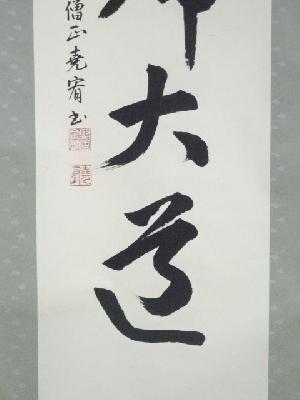 大道
僧正堯宥書